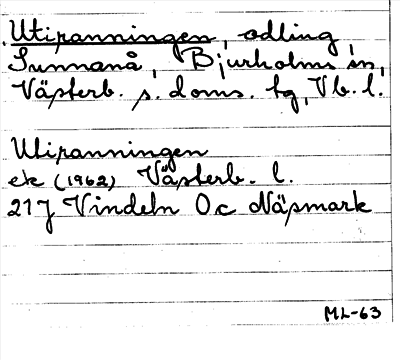 Utipanningen, odling,
Sunnanå, Bjurholms sn,
Västerb. s. doms. tg, Vb. l.
Utipanningen
ek (1962) Västerb. l.
21J Vindeln 0c Näsmark
ML-63